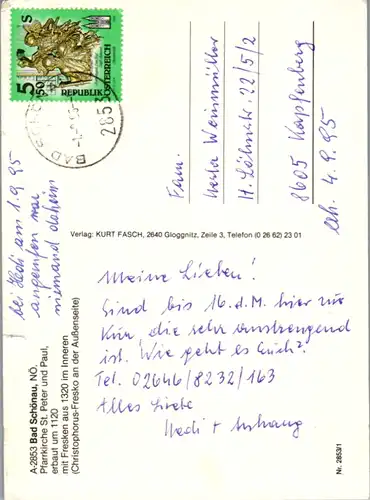 5 50
S
REPUBLIK
ÖSTERREICH
2853
BAD
Fam.
Herta Weinmüller
8605 Kapfenberg
erh. 4.9.95
bei Hedi am 1.9.95
angerufen war
niemand daheim
Verlag: KURT FASCH, 2640 Gloggnitz, Zeile 3, Telefon (0 26 62) 23 01
Meine Lieben!
Sind bis 16. d. M. hier zur
Kur, die sehr anstrengend
ist. Wie geht es Euch?
Tel. 02646/8232/163
Alles Liebe
Hedi + Anhang
A-2853 Bad Schönau, NÖ.
Pfarrkirche St. Peter und Paul,
erbaut um 1120
mit Fresken aus 1320 im Inneren
(Christophorus-Fresko an der Außenseite)
Nr. 2853/1